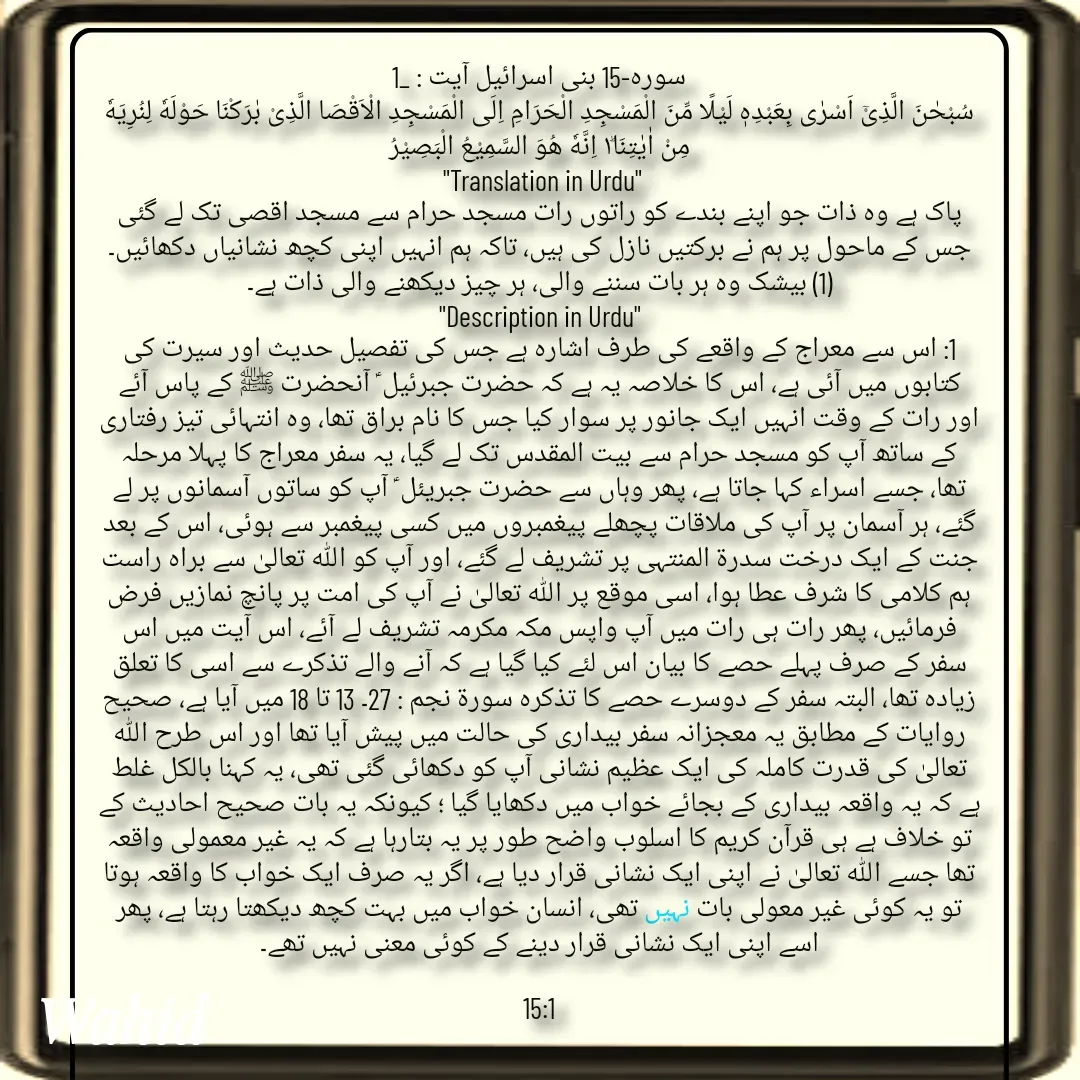 سورہ-15 بنی اسرائیل آیت : _1
سُبْحٰنَ الَّذِیْۤ اَسْرٰی بِعَبْدِهٖ لَیْلًا مِّنَ الْمَسْجِدِ الْحَرَامِ اِلَی الْمَسْجِدِ الْاَقْصَا الَّذِیْ بٰرَكْنَا حَوْلَهٗ لِنُرِیَهٗ
مِنْ اٰیٰتِنَا١ؕ اِنَّهٗ هُوَ السَّمِیْعُ الْبَصِیْرُ
"Translation in Urdu"
پاک ہے وہ ذات جو اپنے بندے کو راتوں رات مسجد حرام سے مسجد اقصی تک لے گئی
جس کے ماحول پر ہم نے برکتیں نازل کی ہیں، تاکہ ہم انہیں اپنی کچھ نشانیاں دکھائیں۔
(1) بیشک وہ ہر بات سننے والی، ہر چیز دیکھنے والی ذات ہے۔
"Description in Urdu"
1: اس سے معراج کے واقعے کی طرف اشارہ ہے جس کی تفصیل حدیث اور سیرت کی
کتابوں میں آئی ہے، اس کا خلاصہ یہ ہے کہ حضرت جبرئیل ؑ آنحضرت ﷺ کے پاس آئے
اور رات کے وقت انہیں ایک جانور پر سوار کیا جس کا نام براق تھا، وہ انتہائی تیز رفتاری
کے ساتھ آپ کو مسجد حرام سے بیت المقدس تک لے گیا، یہ سفر معراج کا پہلا مرحلہ
تھا، جسے اسراء کہا جاتا ہے، پھر وہاں سے حضرت جبریئل ؑ آپ کو ساتوں آسمانوں پر لے
گئے، ہر آسمان پر آپ کی ملاقات پچھلے پیغمبروں میں کسی پیغمبر سے ہوئی، اس کے بعد
جنت کے ایک درخت سدرۃ المنتہی پر تشریف لے گئے، اور آپ کو اللہ تعالیٰ سے براہ راست
ہم کلامی کا شرف عطا ہوا، اسی موقع پر اللہ تعالیٰ نے آپ کی امت پر پانچ نمازیں فرض
فرمائیں، پھر رات ہی رات میں آپ واپس مکہ مکرمہ تشریف لے آئے، اس آیت میں اس
سفر کے صرف پہلے حصے کا بیان اس لئے کیا گیا ہے کہ آنے والے تذکرے سے اسی کا تعلق
زیادہ تھا، البتہ سفر کے دوسرے حصے کا تذکرہ سورة نجم : 27۔ 13 تا 18 میں آیا ہے، صحیح
روایات کے مطابق یہ معجزانہ سفر بیداری کی حالت میں پیش آیا تھا اور اس طرح اللہ
تعالیٰ کی قدرت کاملہ کی ایک عظیم نشانی آپ کو دکھائی گئی تھی، یہ کہنا بالکل غلط
ہے کہ یہ واقعہ بیداری کے بجائے خواب میں دکھایا گیا ؛ کیونکہ یہ بات صحیح احادیث کے
تو خلاف ہے ہی قرآن کریم کا اسلوب واضح طور پر یہ بتارہا ہے کہ یہ غیر معمولی واقعہ
تھا جسے اللہ تعالیٰ نے اپنی ایک نشانی قرار دیا ہے، اگر یہ صرف ایک خواب کا واقعہ ہوتا
تو یہ کوئی غیر معولی بات نہیں تھی، انسان خواب میں بہت کچھ دیکھتا رہتا ہے، پھر
اسے اپنی ایک نشانی قرار دینے کے کوئی معنی نہیں تھے۔
15:1
Wahid